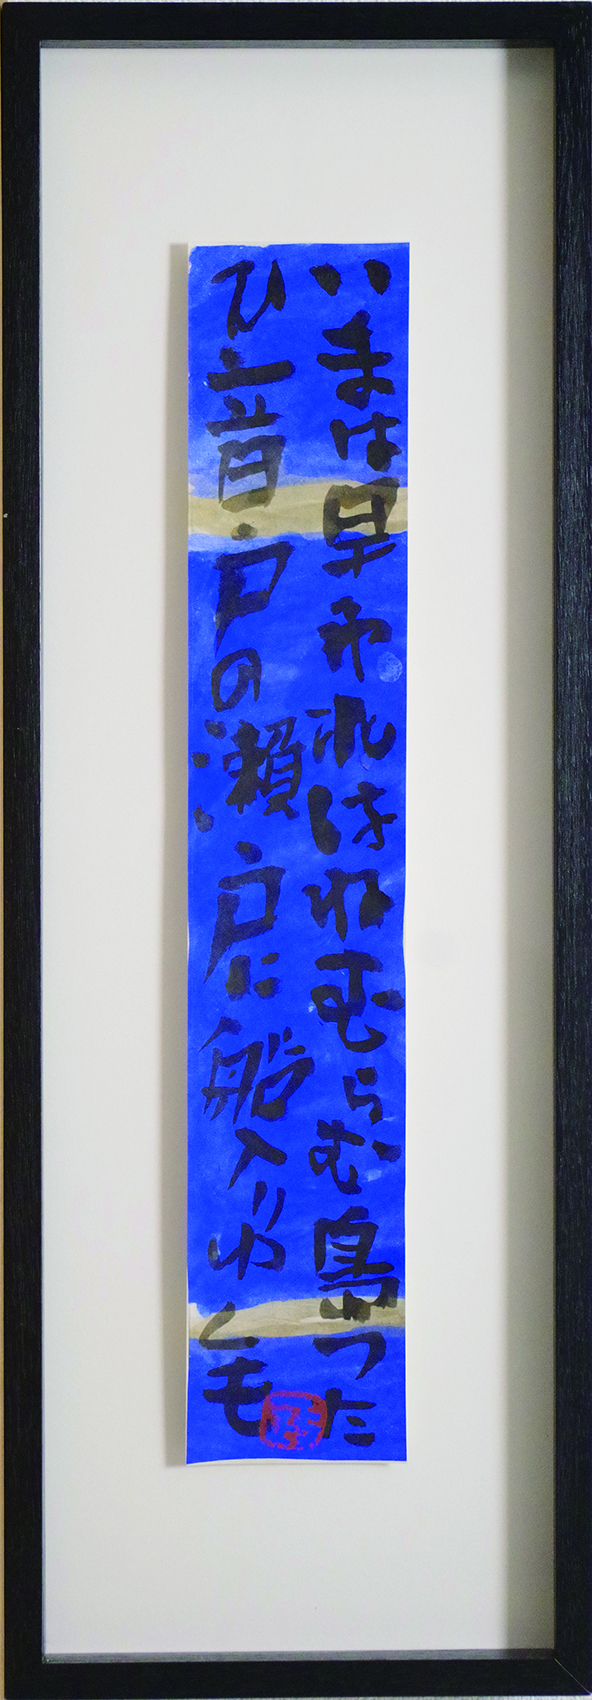 いまは早われはねむらむ島つた
ひ音戸の瀬戸に船入りゆくも